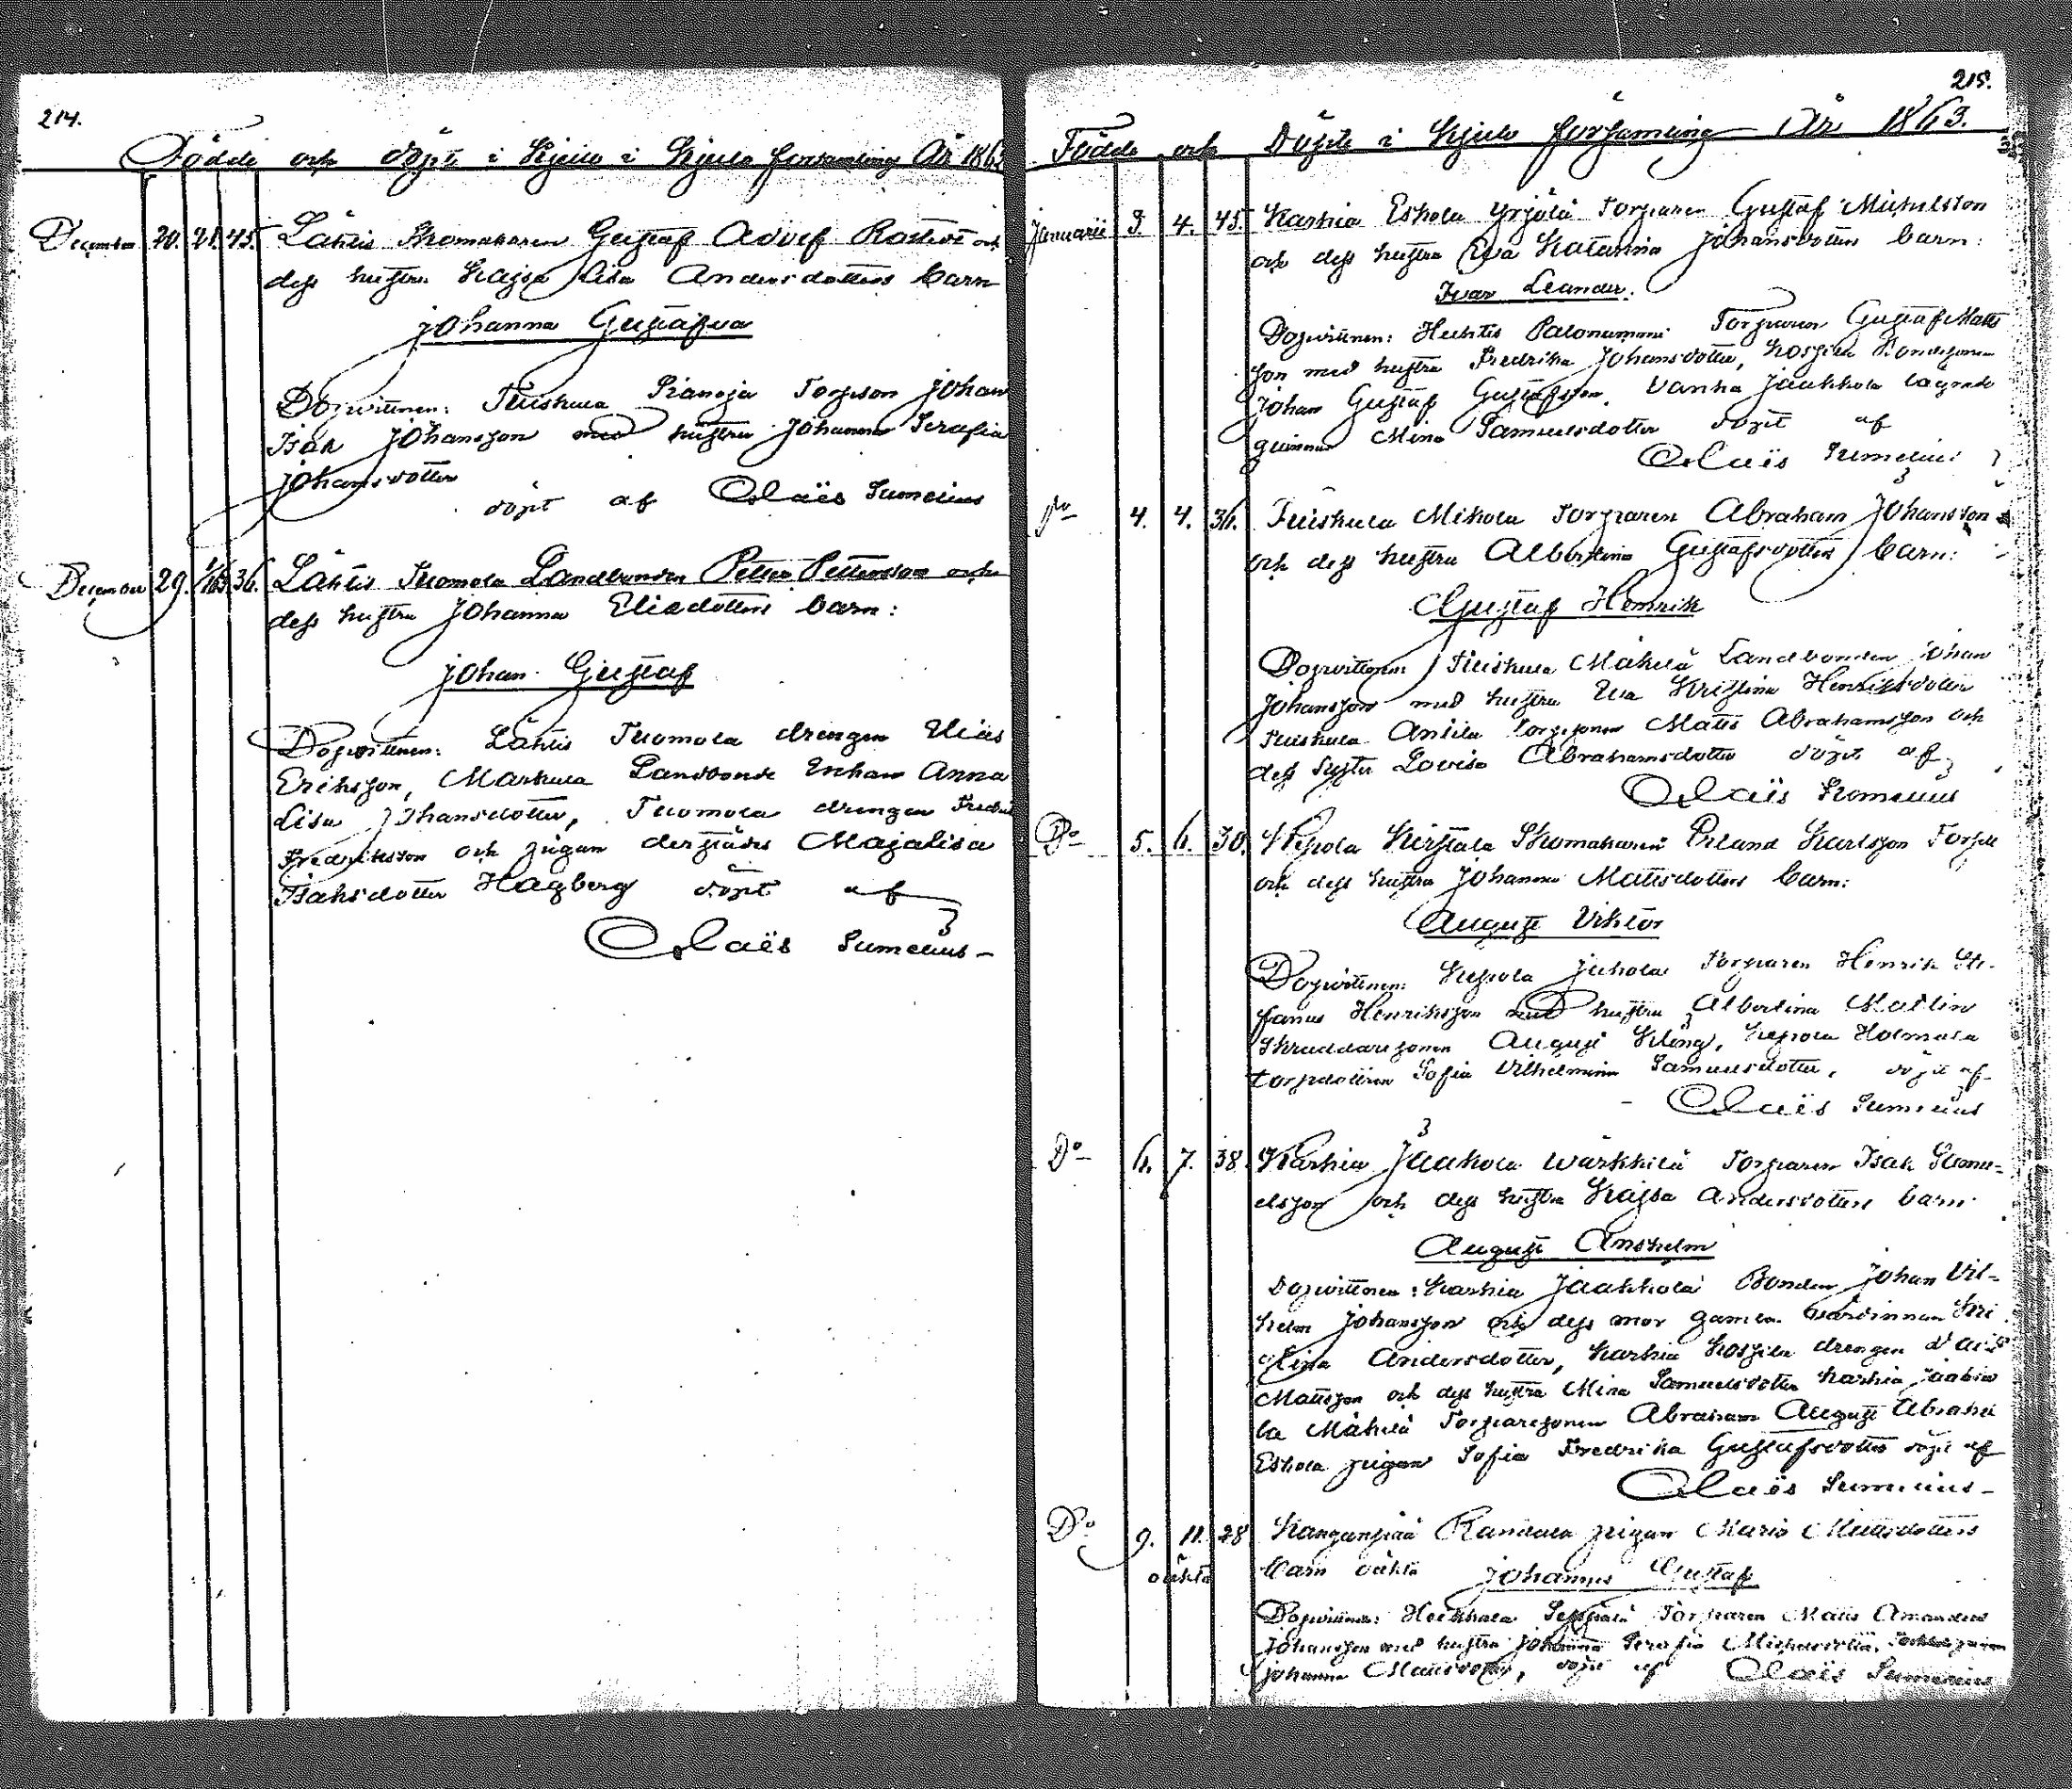 214.
Födde och döpte i Kjulo i Kjulo församling År 1862
December 20. 21. 45. Lähtis Skomakaren Gustaf Adolf och
dess hustru Kajsa Lisa Andersdotters barn
Johanna Gustafva
Dopvittnen: Tuiskula Torpson Johan
Isak Johansson med hustru Johanna Serafia
Johansdotter
döpt af Claës Sumelius
December 29. 36. Lähtis Tuomola Landbonden Petter Pettersson och
dess hustru Johanna Eliedotters barn:
Johan Gustaf
Dopvittnen: Lähtis Tuomola drengen Elias
Eriksson, Markula Landbonde Enkan Anna
Lisa Johansdotter, Tuomola drengen
Fredriksson och pigan derstädes Majalisa
Isaksdotter Hagberg döpt af
Claës Sumelius
215.
Födde och Döpte i Kjulo församling År 1863.
Januarii 3. 4. 45. Karhia Eskola Yrjölä Torparen Gustaf Michelsson
och dess hustru Eva Katarina Johansdotters barn:
Ivar Leander.
Dopvittnen: Torparen Gustaf Matts
son med hustru Fredrika Johansdotter, Bondesonen
Johan Gustaf Gustafsson, Vanha Jaakkola
Mina Samuelsdotter döpt af
Claës Sumelius
Do 4. 4. 36. Tuiskula Mikola Torparen Abraham Johansson
och dess hustru Albertina Gustafsdotters barn:
Gustaf Henrik
Dopvittnen Tuiskula Mäkilä Landbonden Johan
Johansson med hustru Eva Kristina Henriksdotter
Tuiskula Anttila Torpsonen Matts Abrahamsson och
dess Syster Lovisa Abrahamsdotter döpt af
Claës Sumelius
Do 5. 6. 30. Kepola Skomakaren Erland Karlsson
och dess hustru Johanna Mattsdotters barn:
August Viktor
Dopvittnen: Kepola Juhola Torparen Henrik Ste-
fanus Henriksson med hustru Albertina Mallin
Skraddaresonen August Kling, Kepola Holmala
torpdottren Sofia Vilhelmina Samuelsdotter, döpt af
Claës Sumelius
Do 6. 7. 38. Karhia Jaakola Wärkkilä Torparen Isak Samu-
elsson och dess hustru Kajsa Andersdotters barn
August Anshelm
Dopvittnen: Karhia Jaakkola Bonden Johan Vil-
helm Johansson och dess mor gamla värdinnan Kri
stina Andersdotter, Karhia drengen David
Mattsson och dess hustru Mina Samuelsdotter Karhia
la Mäkilä Torparesonen Abraham August
Eskola pigan Sofia Fredrika Gustafsdotter döpt af
Claës Sumelius
Do 9. 11. 28. Kanganpää Randala pigan Maria Mattsdotters
oäkta barn oäkta Johannes Gustaf
Dopvittnen: Heikkala Seppälä Torparen Matts Amandus
Johansson med hustru Johanna Serafia
Johanna Mattsdotter, döpt af Claës Sumelius